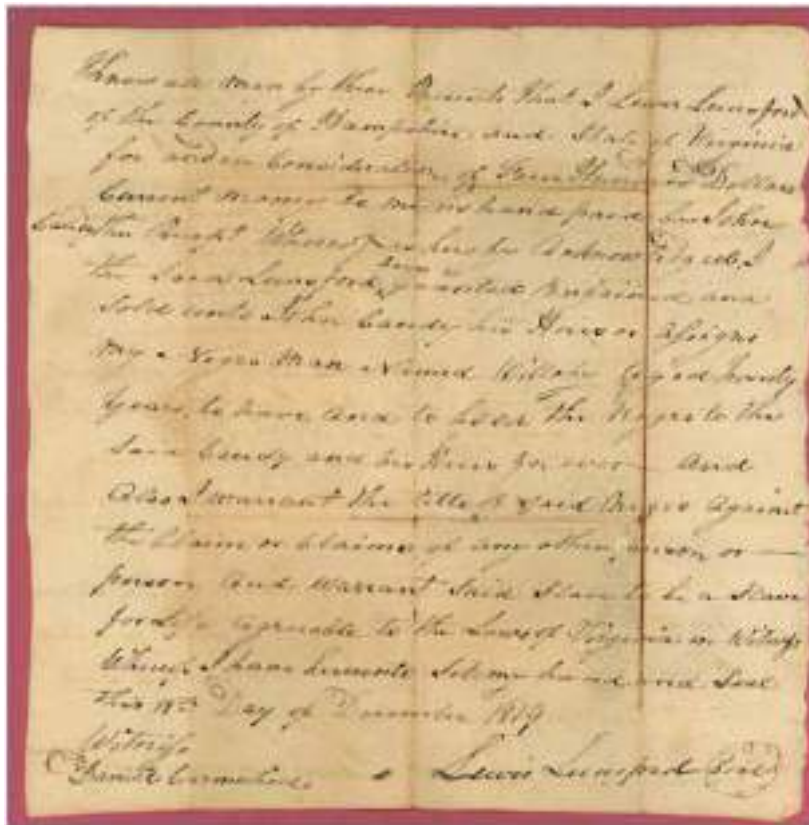 Know all men by these Presents that I Lewis Lunsford
of the County of Hampshire and State of Virginia
for and in Consideration of Four Hundred Dollars
Current money to me in hand paid by John
Candy the Receipt Whereof is hereby Acknowledged I
the said Lunsford have granted Bargained and
Sold unto John Candy his Heirs or Assigns
my Negro Man Named aged
years, to have and to hold the Negro to the
said Candy and his Heirs for ever — And
Also I warrant the title of said Negro Against
the Claim or Claims of any other person or —
person And warrant said Slave to be a Slave
for life agreeable to the Laws of Virginia in Witness
Whereof I have hereunto Set my hand and Seal
this 18th Day of December 1819
Witness
Daniel Carmichael
Lewis Lunsford Seal